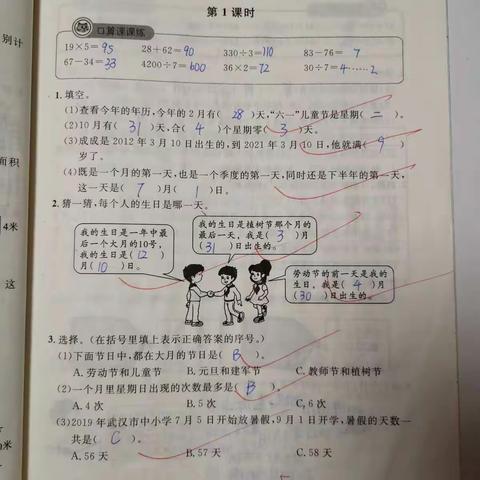 第1课时
别计
口算课课练
19×5=95 28+62=90 330÷3=110 83-76= 7
67-34=33 4200÷7=600 36×2=72 30÷7=4……2
1. 填空。
(1)查看今年的年历,今年的2月有( 28 )天,“六一”儿童节是星期( 二 )。
(2)10月有( 31 )天,合( 4 )个星期零( 3 )天。
(3)成成是2012年3月10日出生的,到2021年3月10日,他就满( 9 )
岁了。
面积
(4)既是一个月的第一天,也是一个季度的第一天,同时还是下半年的第一天,
这一天是( 7 )月( 1 )日。
2. 猜一猜,每个人的生日是哪一天。
4米
我的生日是一年中最
后一个大月的10号,
我的生日是(12)
月(10)日。
我的生日是植树节那个月的
最后一天。我是( 3 )月
(31)日出生的。
劳动节的前一天是我的
生日。我是( 4 )月
(30)日出生的。
这
3. 选择。(在括号里填上表示正确答案的序号。)
(1)下面节日中,都在大月的节日是( B )。
A. 劳动节和儿童节 B. 元旦和建军节 C. 教师节和植树节
(2)一个月里星期日出现的次数最多是( B )。
A. 4次 B. 5次 C. 6次
(3)2019年武汉市中小学7月5日开始放暑假,9月1日开学,暑假的天数一
共是( C )。
米
A. 56天 B. 57天 C. 58天